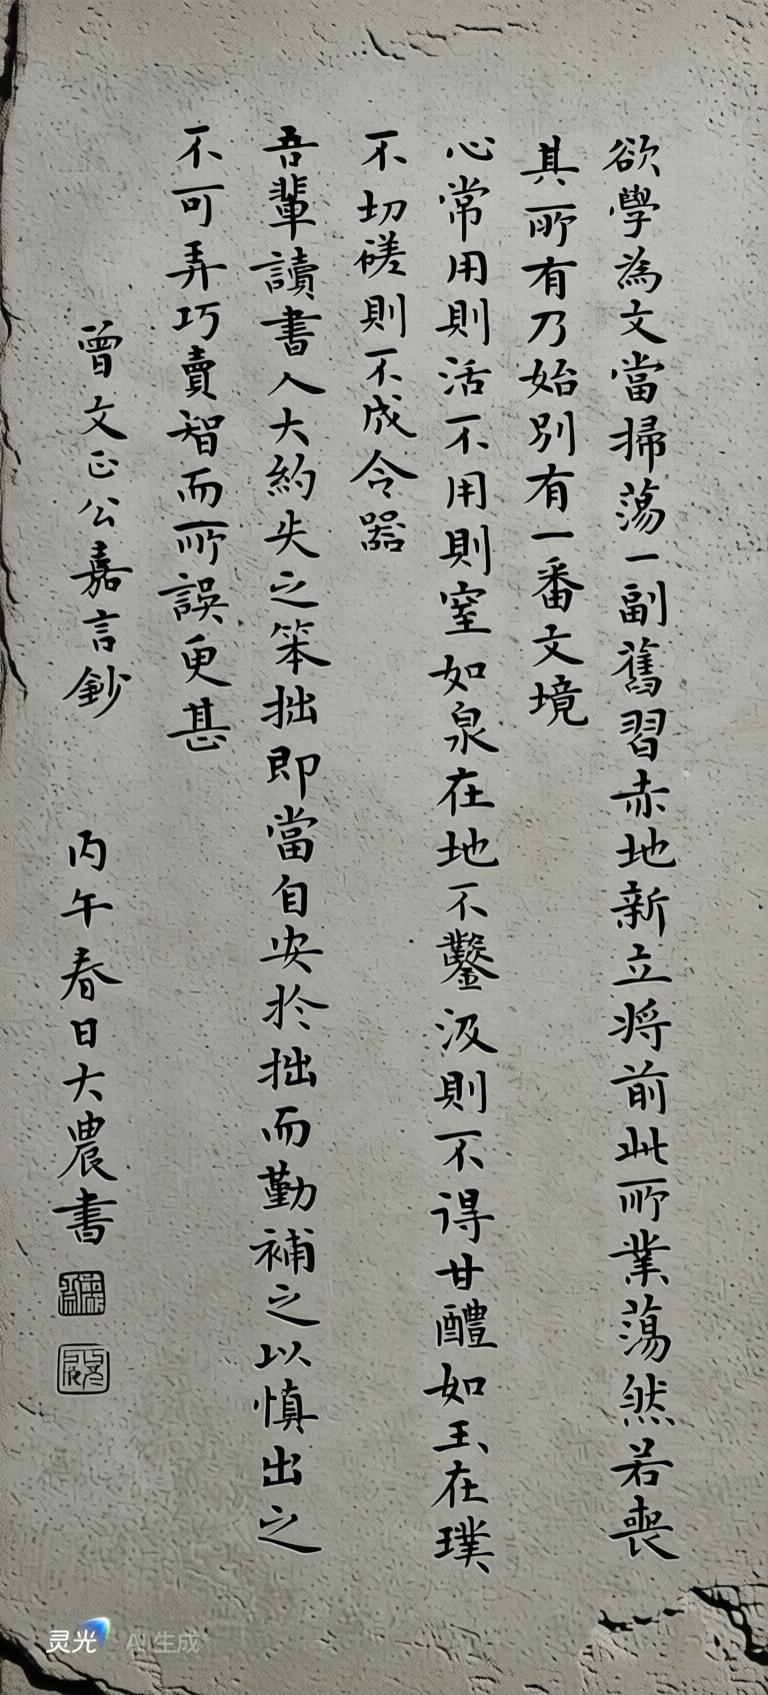 欲學為文當掃蕩一副舊習赤地新立將前此所業蕩然若喪
其所有乃始別有一番文境
心常用則活不用則窒如泉在地不鑿汲則不得甘醴如玉在璞
不切磋則不成令器
吾輩讀書人大約失之笨拙即當自安於拙而勤補之以慎出之
不可弄巧賣智而所誤更甚
曾文正公嘉言鈔
丙午春日大農書
灵光 AI 生成